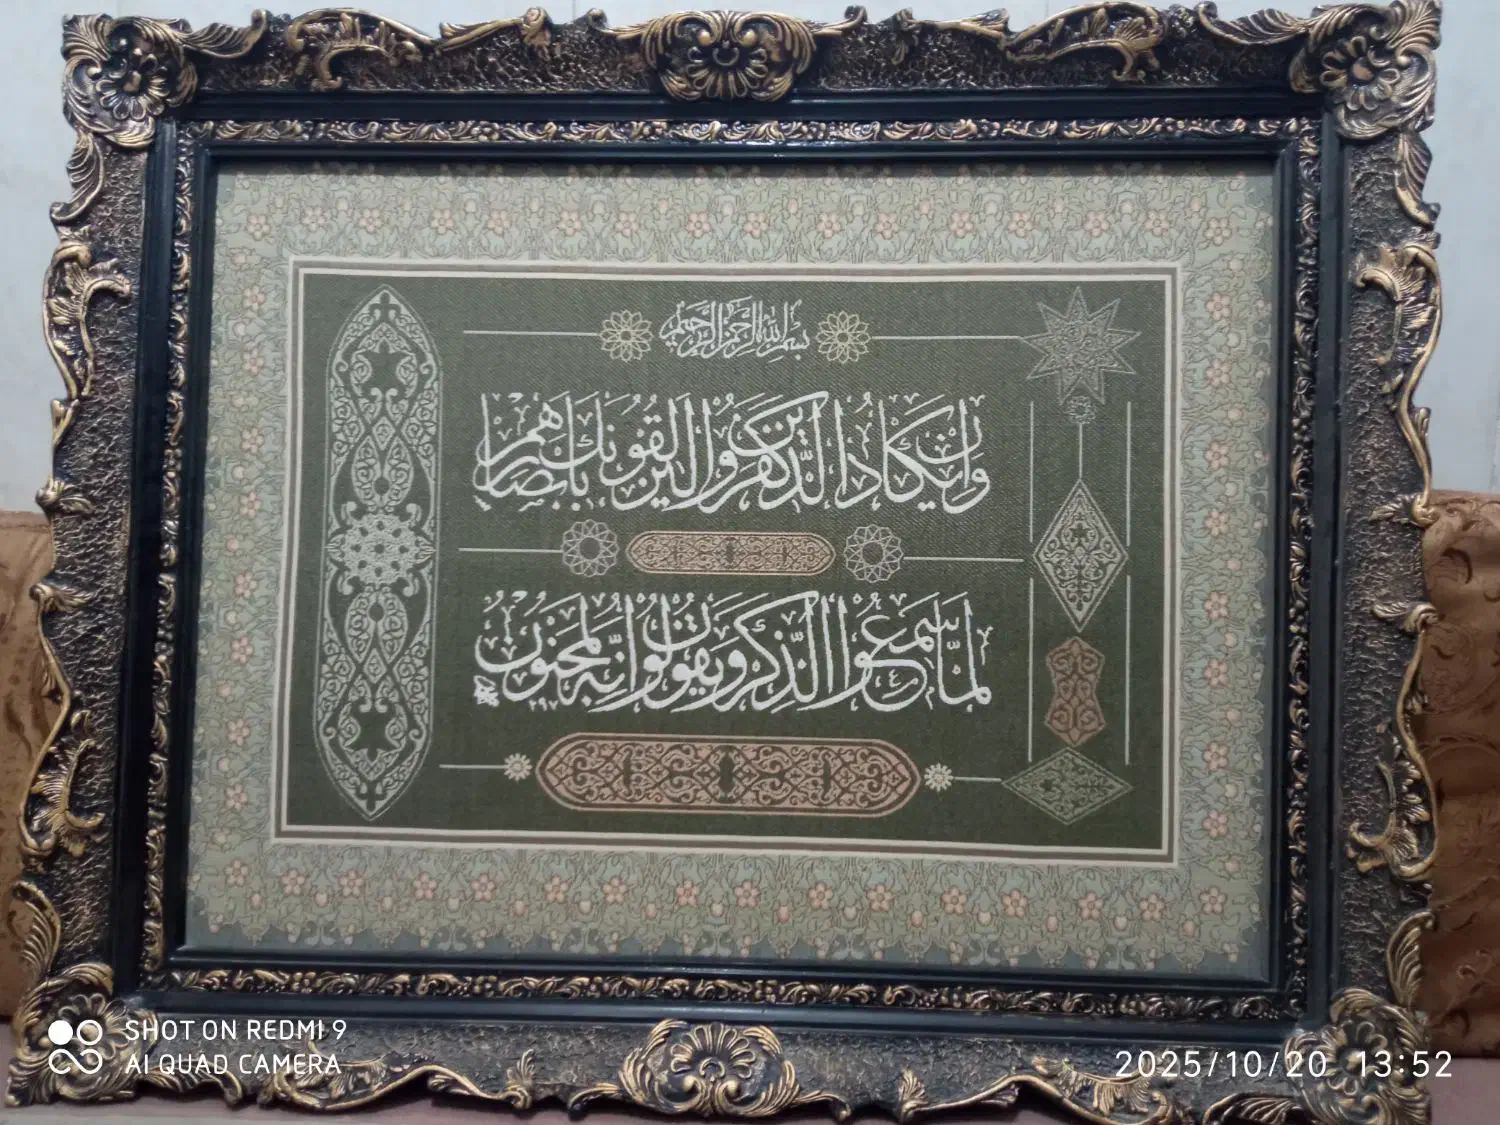 بسم الله الرحمن الرحيم
وَاِنْ يَكَادُ الَّذينَ كَفَرُوا لَيُزْلِقُونَكَ بِاَبْصَارِهِمْ
لَمَّا سَمِعُوا الذِّكْرَ وَيَقُولُونَ اِنَّهُ لَمَجْنُونٌ
SHOT ON REDMI 9
AI QUAD CAMERA
2025/10/20 13:52